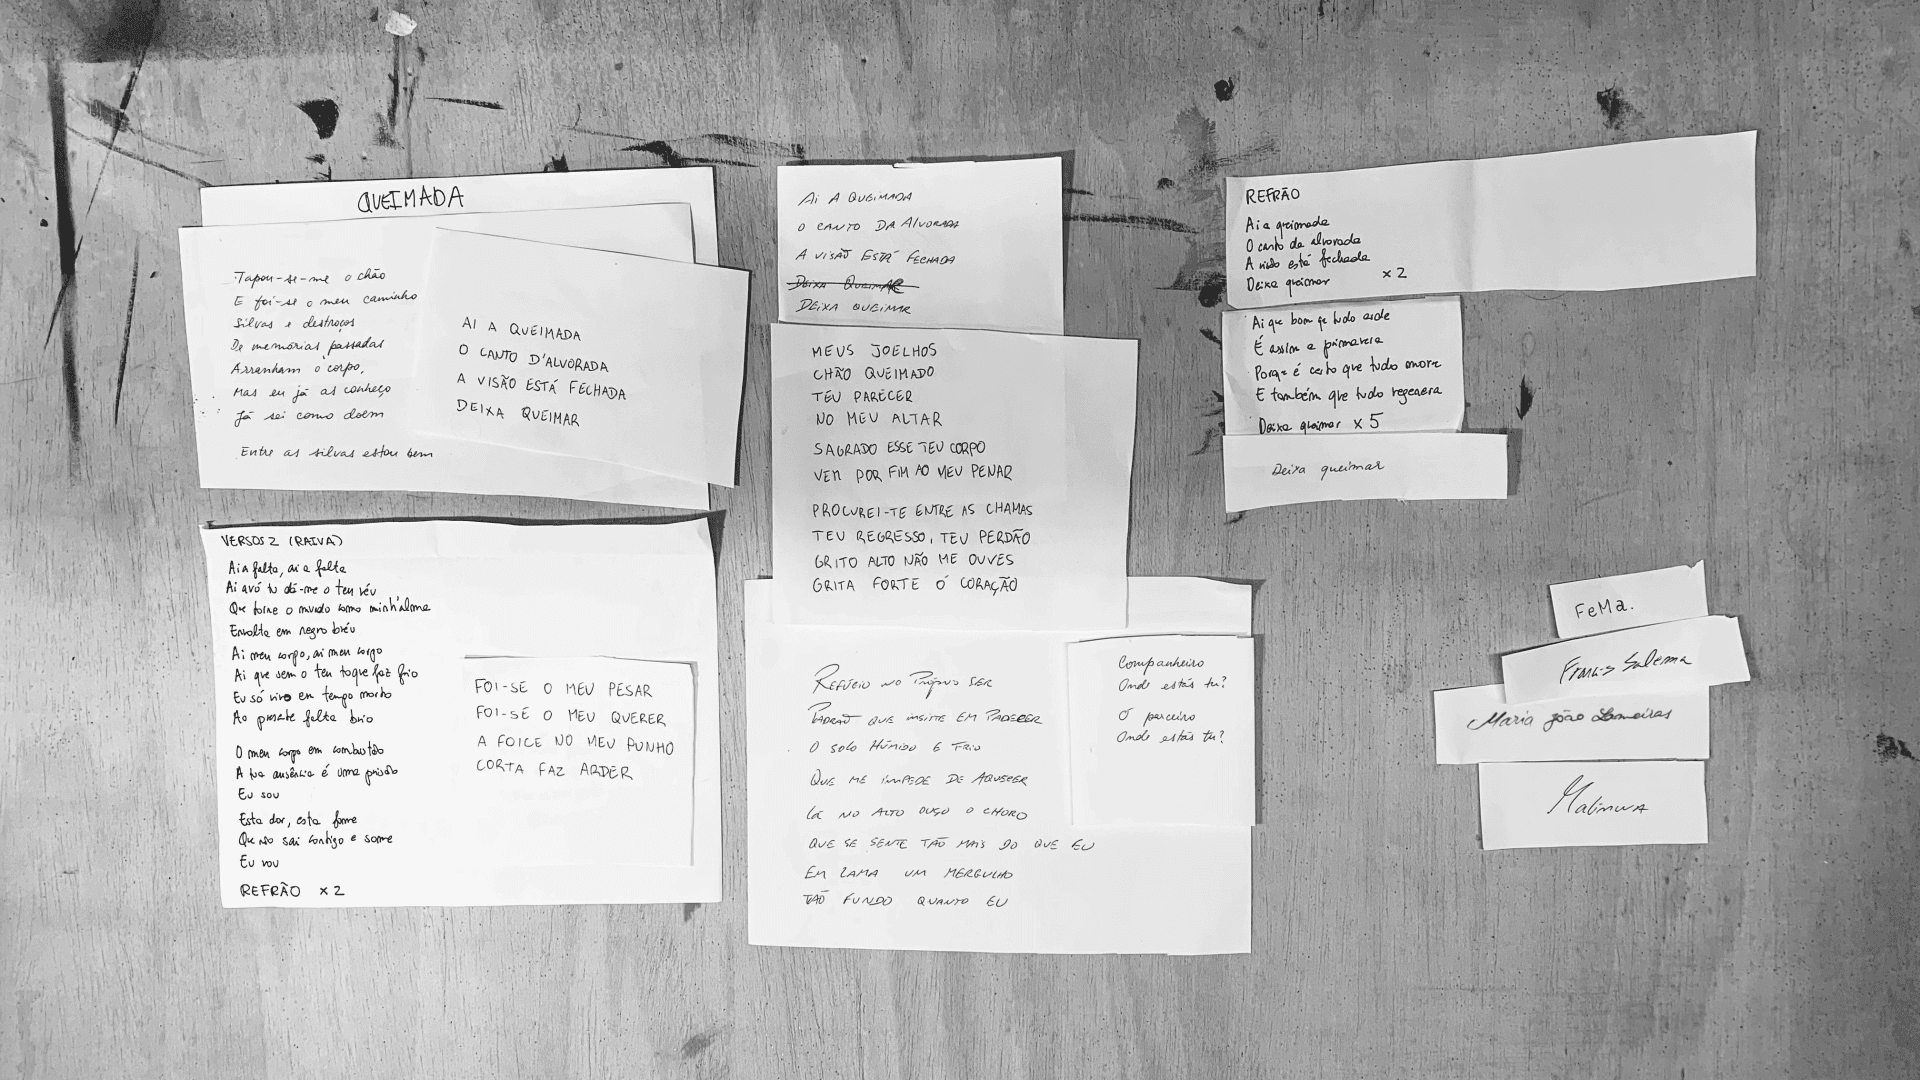 QUEIMADA
Tapou-se-me o chão
E foi-se o meu caminho
Silvas e destroços
De memórias passadas
Arranham o corpo,
Mas eu já as conheço
Já sei como doem
Entre as silvas estou bem
AI A QUEIMADA
O CANTO D'ALVORADA
A VISÃO ESTÁ FECHADA
DEIXA QUEIMAR
VERSOS 2 (RAIVA)
Ai a falta, ai a falta
Ai avó tu dá-me o teu véu
Que torne o mundo como minh'alma
Envolta em negro bréu
Ai meu corpo, ai meu corpo
Ai que sem o teu toque faz frio
Eu só vivo em tempo morto
Ao presente falta brio
O meu corpo em combustão
A tua ausência é uma prisão
Eu sou
Esta dor, esta fome
Que não sai contigo e some
Eu vou
REFRÃO x2
FOI-SE O MEU PESAR
FOI-SE O MEU QUERER
A FOICE NO MEU PUNHO
CORTA FAZ ARDER
AI A QUEIMADA
O CANTO DA ALVORADA
A VISÃO ESTÁ FECHADA
DEIXA QUEIMAR
DEIXA QUEIMAR
MEUS JOELHOS
CHÃO QUEIMADO
TEU PARECER
NO MEU ALTAR
SAGRADO ESSE TEU CORPO
VEM POR FIM AO MEU PENAR
PROCUREI-TE ENTRE AS CHAMAS
TEU REGRESSO, TEU PERDÃO
GRITO ALTO NÃO ME OUVES
GRITA FORTE Ó CORAÇÃO
REFÚGIO NO PRÓPRIO SER
PADRÃO QUE INSISTE EM PADECER
O SOLO HÚMIDO E FRIO
QUE ME IMPEDE DE AQUECER
LÁ NO ALTO OUÇO O CHORO
QUE SE SENTE TÃO MAIS DO QUE EU
EM LAMA UM MERGULHO
TÃO FUNDO QUANTO EU
Companheiro
Onde estás tu?
Ó parceiro
Onde estás tu?
REFRÃO
Ai a queimada
O canto da alvorada
A visão está fechada
Deixa queimar x2
Ai que bom qe tudo arde
É assim a primavera
Porque é certo que tudo morre
E também que tudo regenera
Deixa queimar x5
Deixa queimar
FeMa.
Francis Salema
Maria João Lameiras
Malinwa